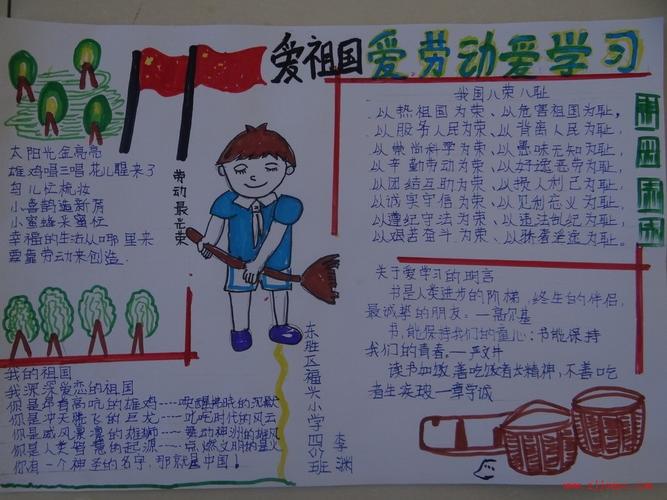 爱祖国爱劳动爱学习
太阳光金亮亮
雄鸡唱三唱花儿醒来了
鸟儿忙梳妆
小喜鹊造新房
小蜜蜂采蜜忙
幸福的生活从哪里来
要靠劳动来创造.
劳动最光荣
我国八荣八耻
以热祖国为荣、以危害祖国为耻,
以服务人民为荣、以背离人民为耻,
以崇尚科学为荣、以愚昧无知为耻,
以辛勤劳动为荣、以好逸恶劳为耻,
以团结互助为荣、以损人利己为耻,
以诚实守信为荣、以见利忘义为耻,
以遵纪守法为荣、以违法乱纪为耻,
以艰苦奋斗为荣、以骄奢淫逸为耻.
关于爱学习的名言
书是人类进步的阶梯,终生的伴侣,
最诚挚的朋友.——高尔基
书,能保持我们的童心;书能保持
我们的青春.——严文井
读书如饭,善吃饭者长精神,不善吃
者生疾 —章学诚
我的祖国
我深深爱恋的祖国
你是昂首高吭的雄鸡——唤醒拂晓的沉默
你是冲天腾飞的巨龙——叱咤时代的风云
你是威风凛凛的雄狮——舞动神州的雄风
你是人类智慧的起源——点燃文明的星火
你有一个神圣的名字,那就是中国!
东胜区福兴小学四(2)班
李渊